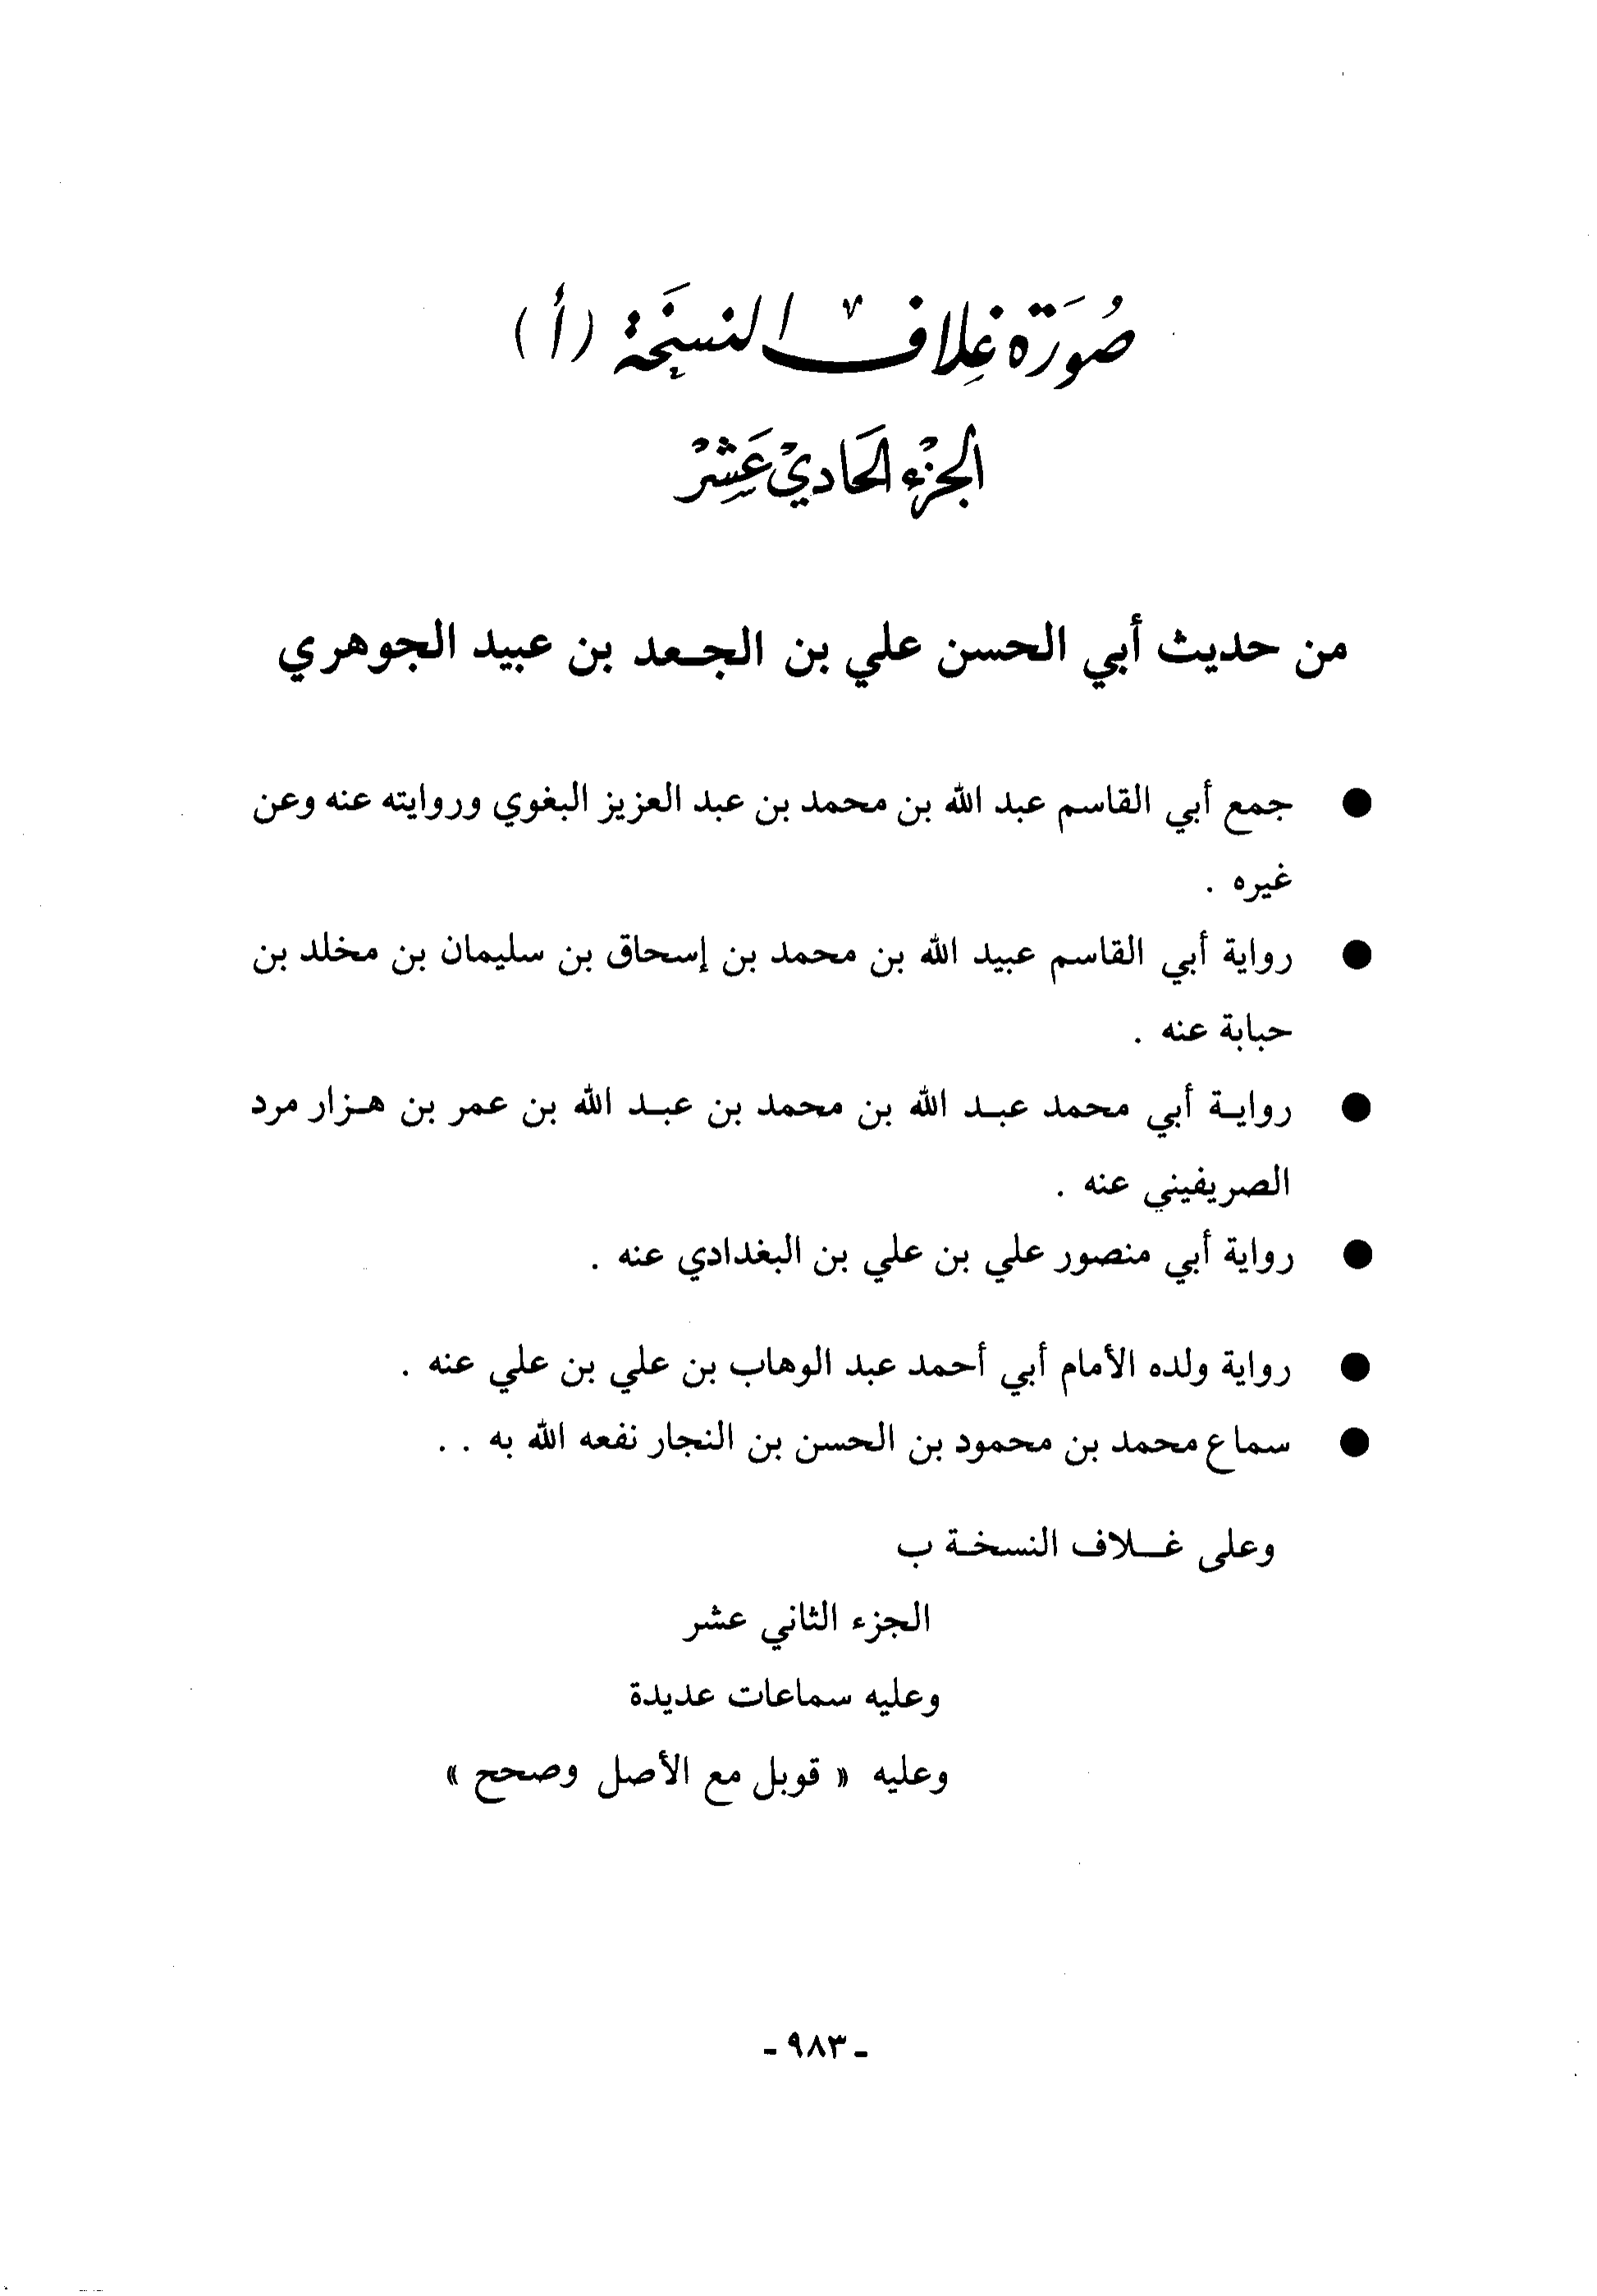 صُورَة غِلاف النسخَة (أ)
الجزْء الحَادي عَشرْ
من حديث أبي الحسن علي بن الجـعد بن عبيد الجوهري
● جمع أبي القاسم عبد الله بن محمد بن عبد العزيز البغوي وروايته عنه وعن
غيره .
● رواية أبي القاسم عبيد الله بن محمد بن إسحاق بن سليمان بن مخلد بن
حبابة عنه .
● روايـة أبي محمد عبـد الله بن محمد بن عبـد الله بن عمر بن هـزار مرد
الصريفيني عنه .
● رواية أبي منصور علي بن علي بن البغدادي عنه .
● رواية ولده الأمام أبي أحمد عبد الوهاب بن علي بن علي عنه .
● سماع محمد بن محمود بن الحسن بن النجار نفعه الله به . .
وعلى غـلاف النسخـة ب
الجزء الثاني عشر
وعليه سماعات عديدة
وعليه « قوبل مع الأصل وصحح »
- ٩٨٣ -